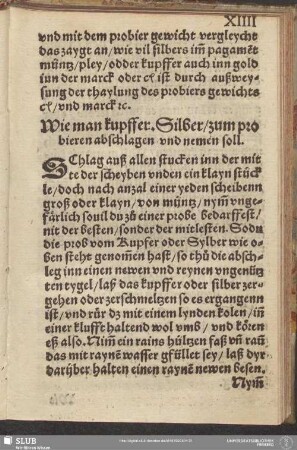 XIIII
vnd mit dem probier gewicht vergleycht
das zaygt an/ wie vil silbers im̃ pagamẽt
müntz/pley/odder kupffer auch inn gold
inn der marck oder cꝉ ist durch außwey-
sung der thaylung des probiers gewichts
cꝉ/vnd marck ꝛc.
Wie man kupffer. Silber/zum pro
bieren abschlagen vnd nemen soll.
SChlag auß allen stucken inn der mit
te der scheyben vnden ein klayn stück
le/doch nach anzal einer yeden scheibenn
groß oder klayn/von müntz/nym̃ vnge-
färlich souil du zů einer probe bedarffest/
nit der besten/sonder der mitlesten. So du
die prob vom Kupfer oder Sylber wie o-
ben steht genom̃en hast/so thů die absch-
leg inn einen newen vnd reynen vngenütz
ten tygel/laß das kupffer oder silber zer-
gehen oder zerschmeltzen so es ergangenn
ist/vnd rür dz mit einem lynden kolen/im̃
einer klufft haltend wol vmb/ vnd kören
eß also. Nim̃ ein rains hültzen faß vñ rañ
das mit raynẽ wasser gfüllet sey/ laß dyr
darüber halten einen raynẽ newen besen.
Nym̃
SLUB
Wir führen Wissen.